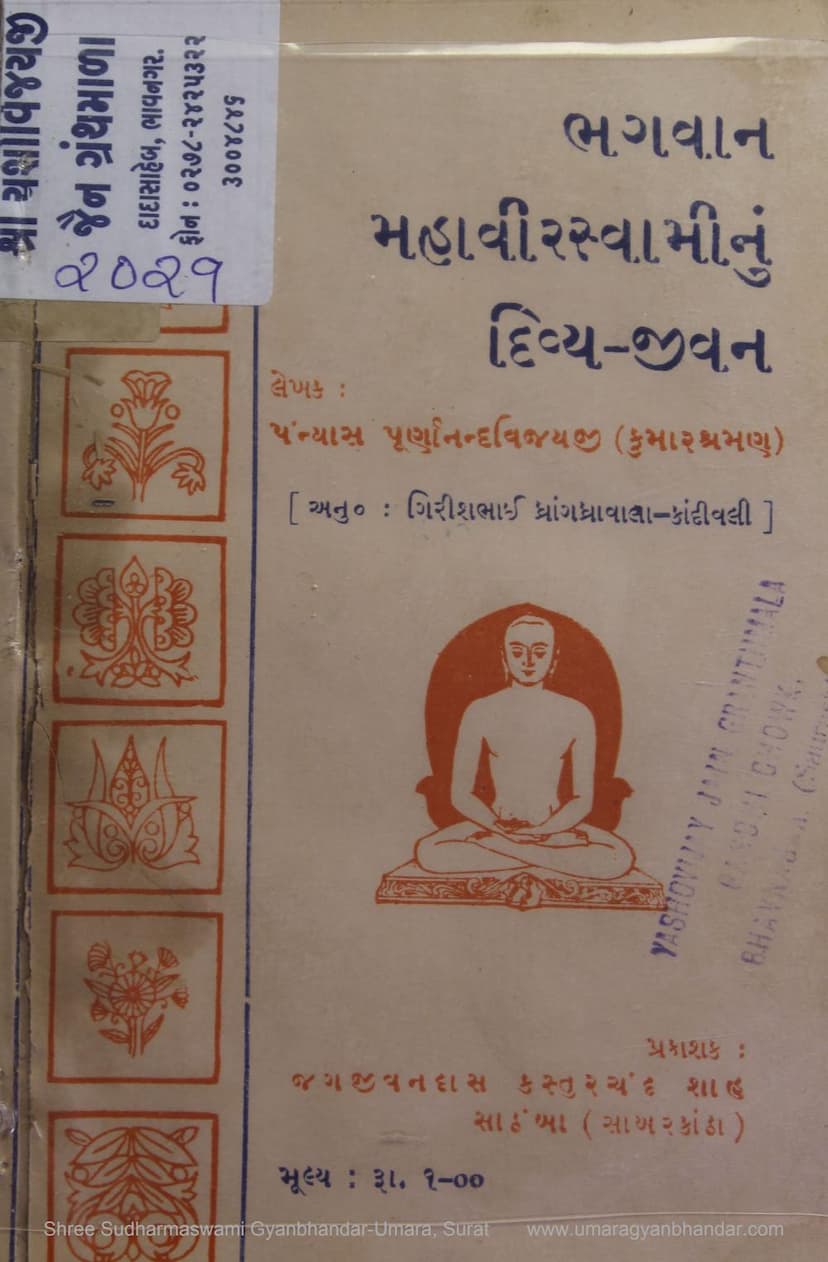 શ્રી યશોવિજયજી
જૈન ગ્રંથમાળા
દાદાસાહેબ, ભાવનગર.
ફોન : ૦૨૭૮-૨૪૨૫૩૨૨
૩૦૦૪૮૪૬
૨૦૨૧
ભગવાન
મહાવીરસ્વામીનું
દિવ્ય-જીવન
લેખક :
પંન્યાસ પૂર્ણાનન્દવિજયજી (કુમારશ્રમણ)
[ અનુ૦ : ગિરીશભાઈ ધ્રાંગધ્રાવાલા–કાંદીવલી ]
YASHOVIJAY JAIN GRANTHMALA
BHAVNAGAR.
પ્રકાશક :
જગજીવનદાસ કસ્તુરચંદ શાહ
સાઠંબા (સાબરકાંઠા)
મૂલ્ય : રૂા. ૧-૦૦
Shree Sudharmaswami Gyanbhandar-Umara, Surat www.umaragyanbhandar.com